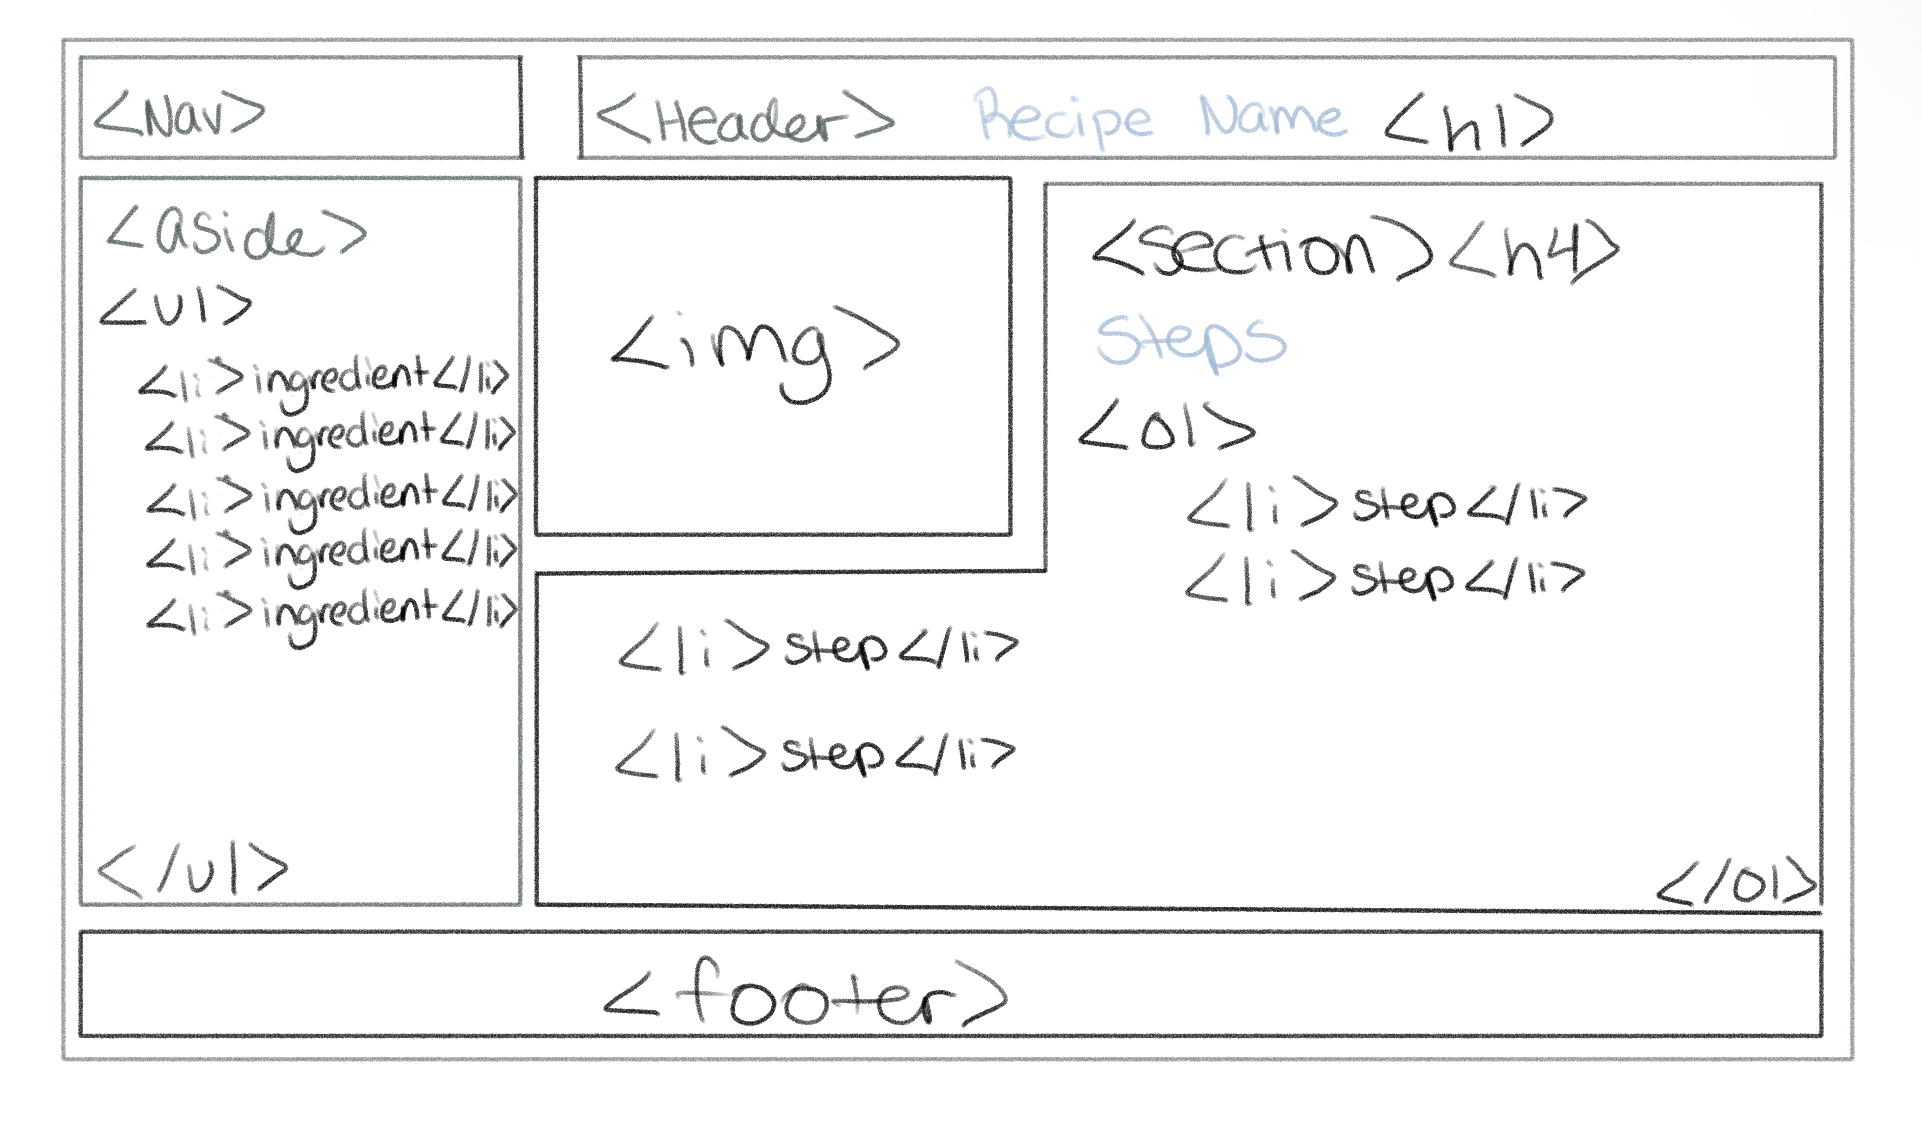 <Nav>
<Header> Recipe Name <h1>
<aside>
<ul>
<li>ingredient</li>
<li>ingredient</li>
<li>ingredient</li>
<li>ingredient</li>
<li>ingredient</li>
</ul>
<img>
<section><h4>
Steps
<ol>
<li>step</li>
<li>step</li>
<li>step</li>
<li>step</li>
</ol>
<footer>